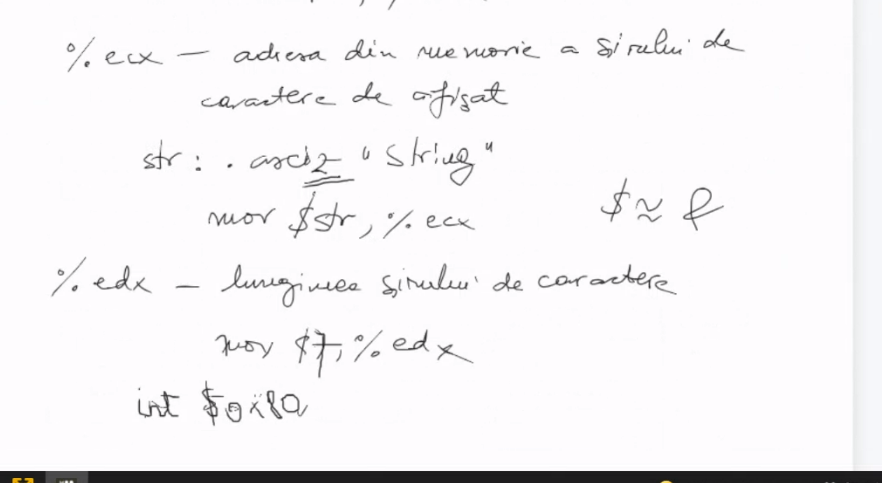 %ecx — adresa din memorie a șirului de
caractere de afișat
str: .asciz "String"
mov $str, %ecx
$ ≈ &
%edx — lungimea șirului de caractere
mov $7, %edx
int $0x80